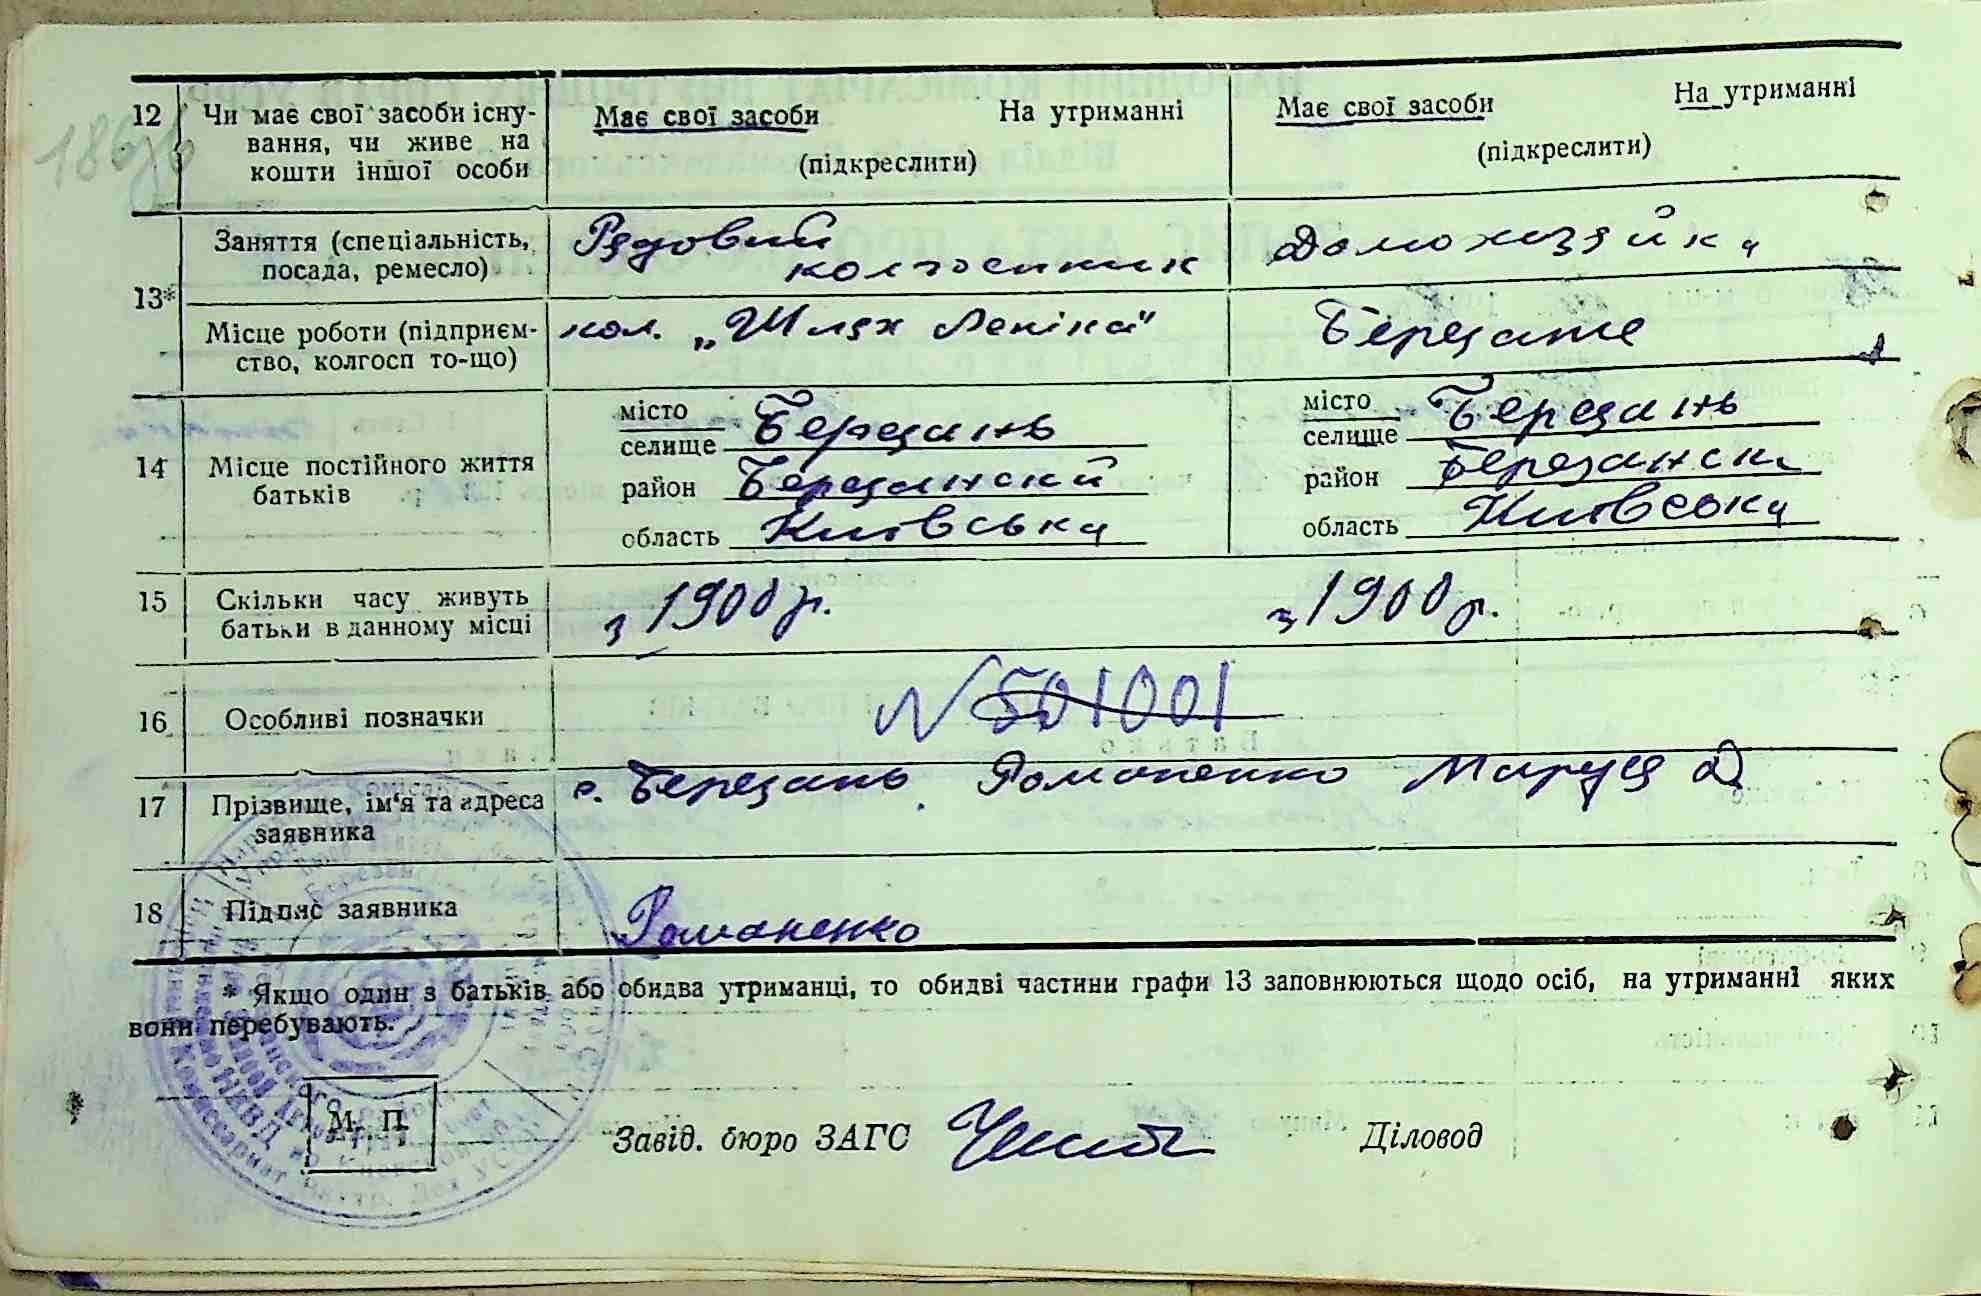 12 Чи має свої засоби існу- Має свої засоби На утриманні Має свої засоби На утриманні
вання, чи живе на
кошти іншої особи (підкреслити) (підкреслити)
Заняття (спеціальність, Рядовий Домохазяйка
посада, ремесло) колгоспник
13*
Місце роботи (підприєм- кол. „Шлях Леніна"
ство, колгосп то-що)
місто місто
селище Березань селище Березань
14 Місце постійного життя район Березанский район
батьків
область Київська область Київська
15 Скільки часу живуть з 1900 р. з 1900 р.
батьки в данному місці
16 Особливі позначки N 501001
17 Прізвище, ім'я та адреса с. Березань Романенко Маруся Д
заявника
18 Підпис заявника Романенко
* Якщо один з батьків або обидва утриманці, то обидві частини графи 13 заповнюються щодо осіб, на утриманні яких
вони перебувають.
М. П.
Завід. бюро ЗАГС Діловод